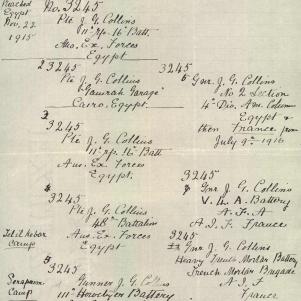 Reached
Egypt
Nov. 22
1915
No. 3245
Pte J. G. Collins
11th rp. 16th Batt.
Aus. Ex. Forces
Egypt
2 3245
Pte J. G. Collins
Cairo, Egypt.
3
3245
Pte J. G. Collins
11th rp. 16th Batt
Aus. Ex Forces
Egypt.
4
3245
Pte J. G. Collins
48th Battalion
Aus. Ex. Forces
Egypt
Tel el Kebir
Camp
5
3245
Gunner J. G. Collins
111th Howitzer Battery
Serapeum
Camp
3245
Gnr. J. G. Collins
No 2 Section
4th Div. Am. Column
Egypt &
then France from
July 9th 1916
3245
Gnr J. G. Collins
Battery
A. F. A
A. I. F. France
Gnr J. G. Collins
Heavy Trench Mortar Battery
Trench Mortar Brigade
A I F
France